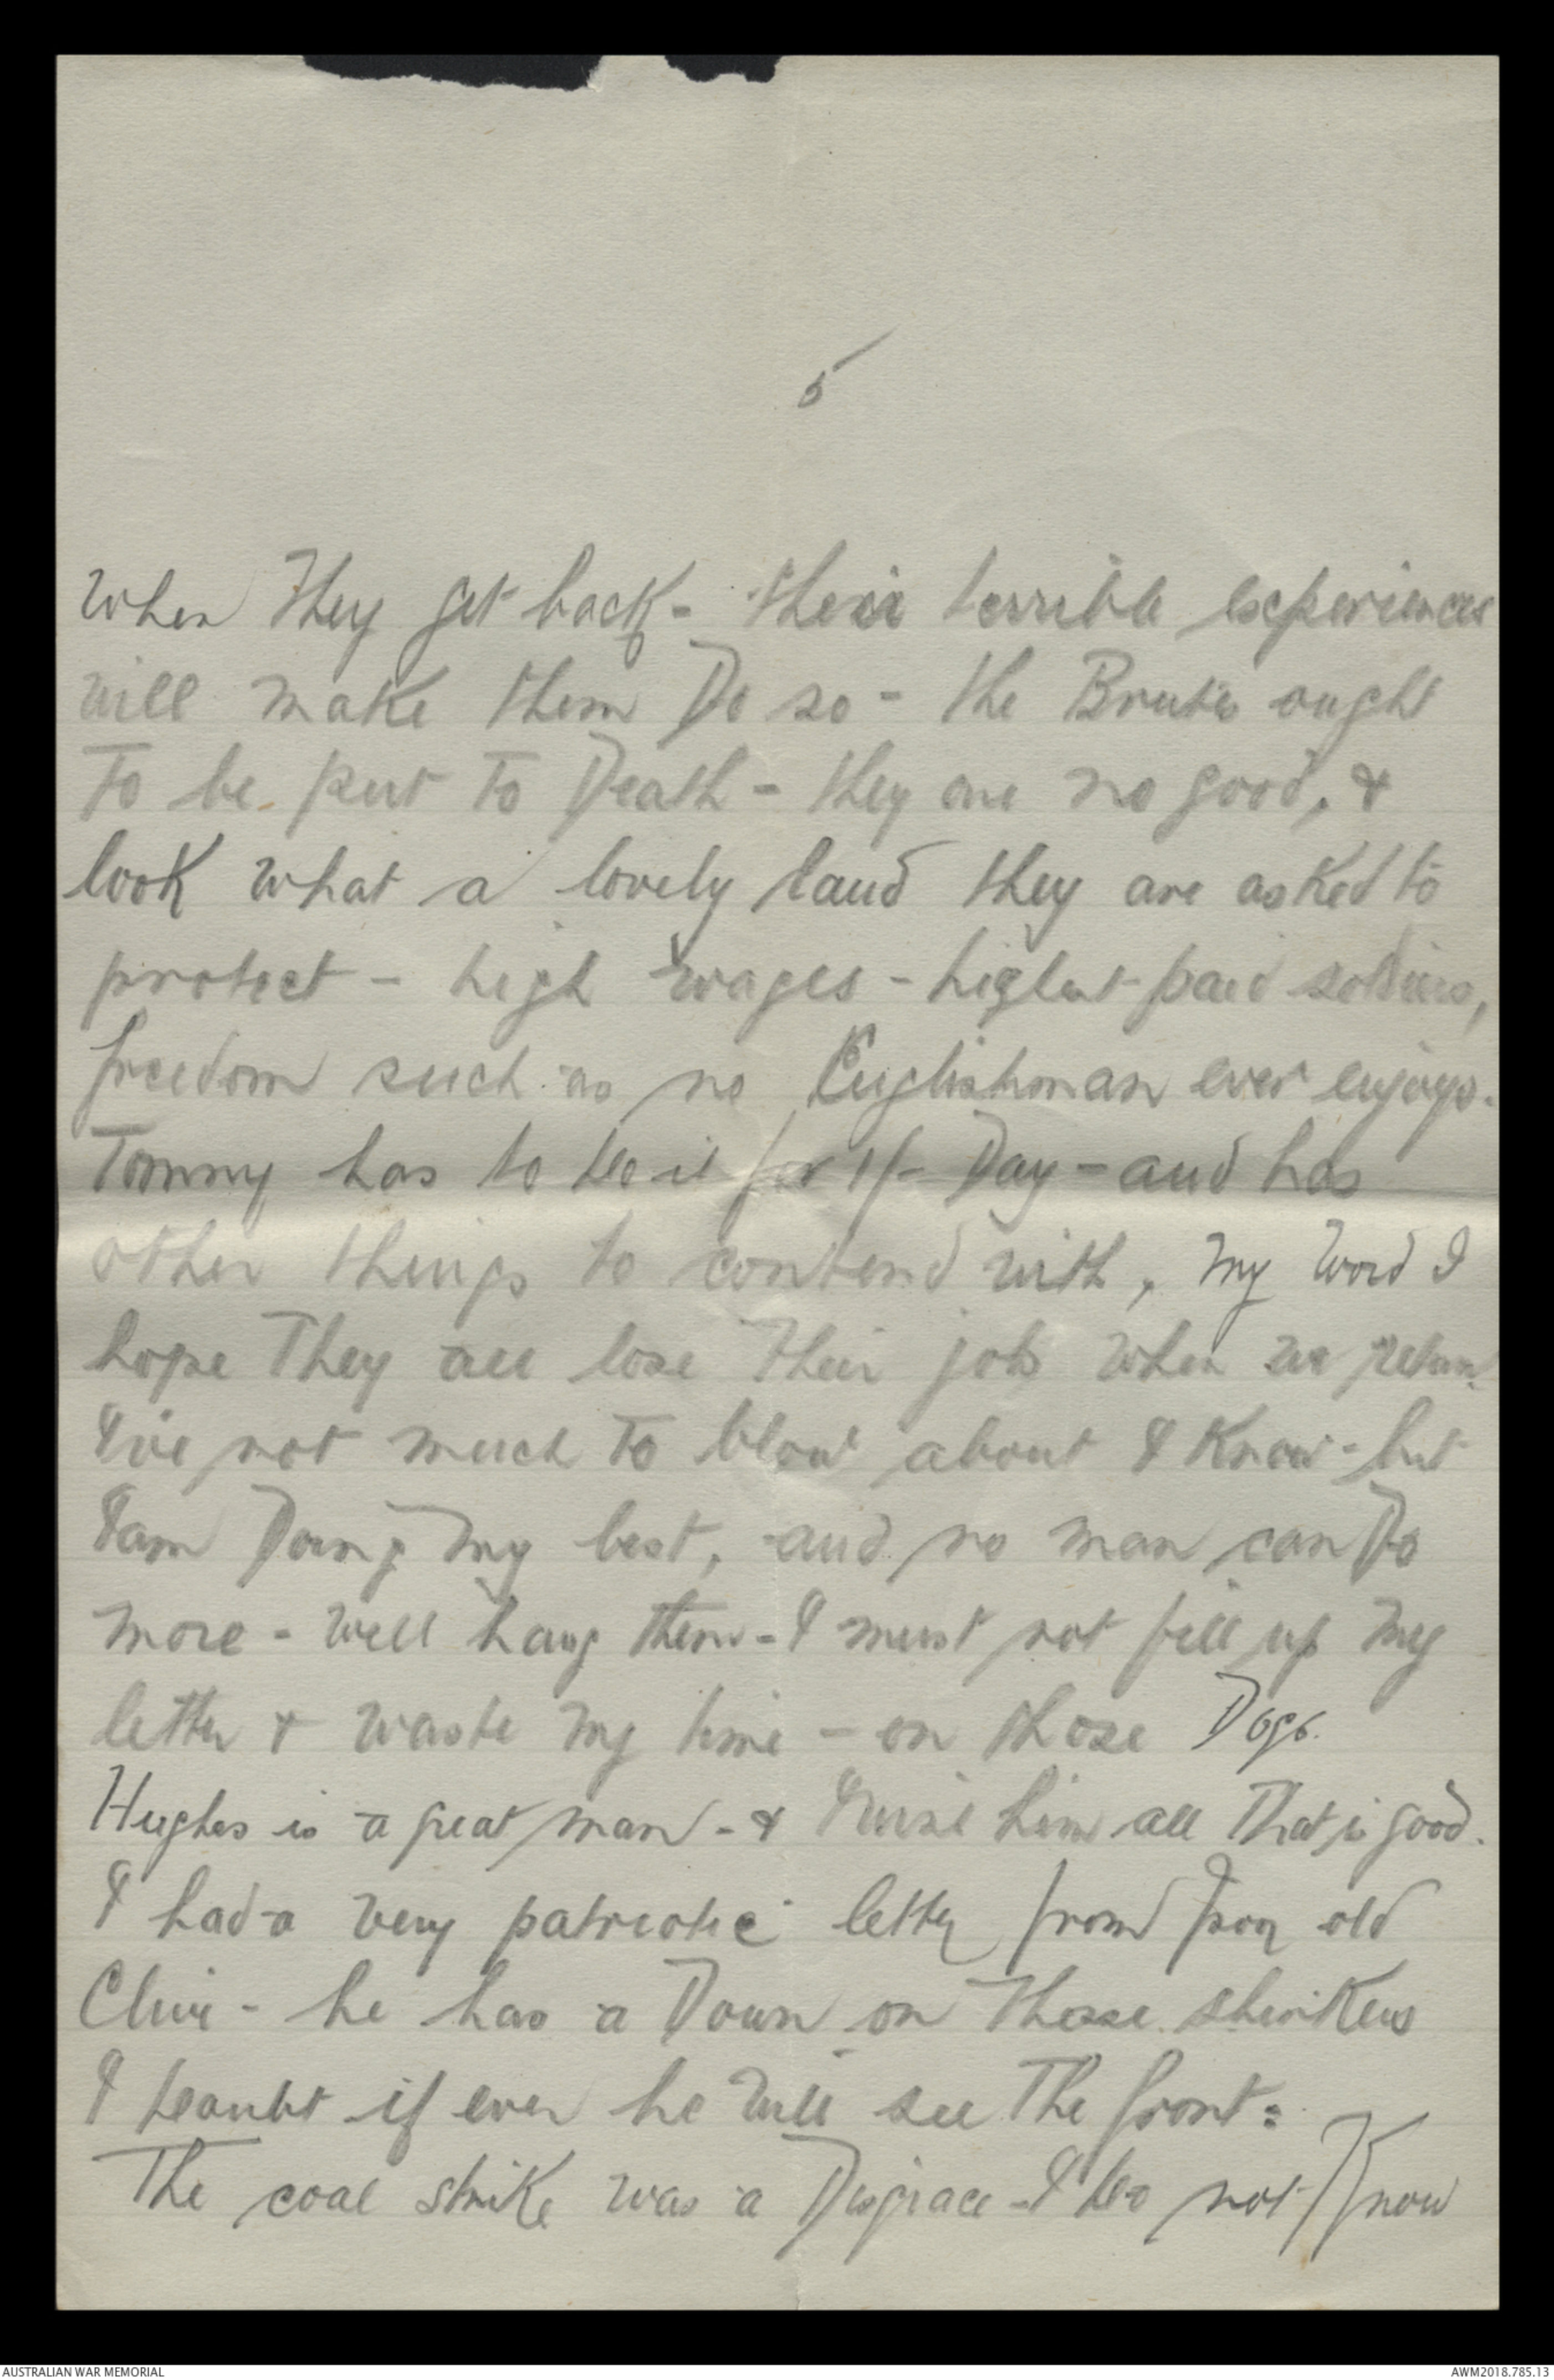 5
When they get back - their terrible experiences
will make them Do so - the Brutes ought
To be put To Death - they are no good, &
look what a lovely land they are asked to
protect - high wages - highest paid soldiers,
freedom such as no Englishman ever enjoys.
Tommy has to do it for 1/- Day - and has
other things to contend with, my word I
hope They all lose their job when we return.
I've not much To blow about I know - but
I am Doing my best, and no man can Do
more - well hang them - I must not fill up my
letter & waste my time - on those Dogs.
Hughes is a great man - & I wish him all That is good.
I had a very patriotic letter from poor old
Clive - he has a Down on These shirkers
I doubt if ever he will see The front =
The coal strike was a Disgrace - I do not Know
AUSTRALIAN WAR MEMORIAL
AWM2018.785.13